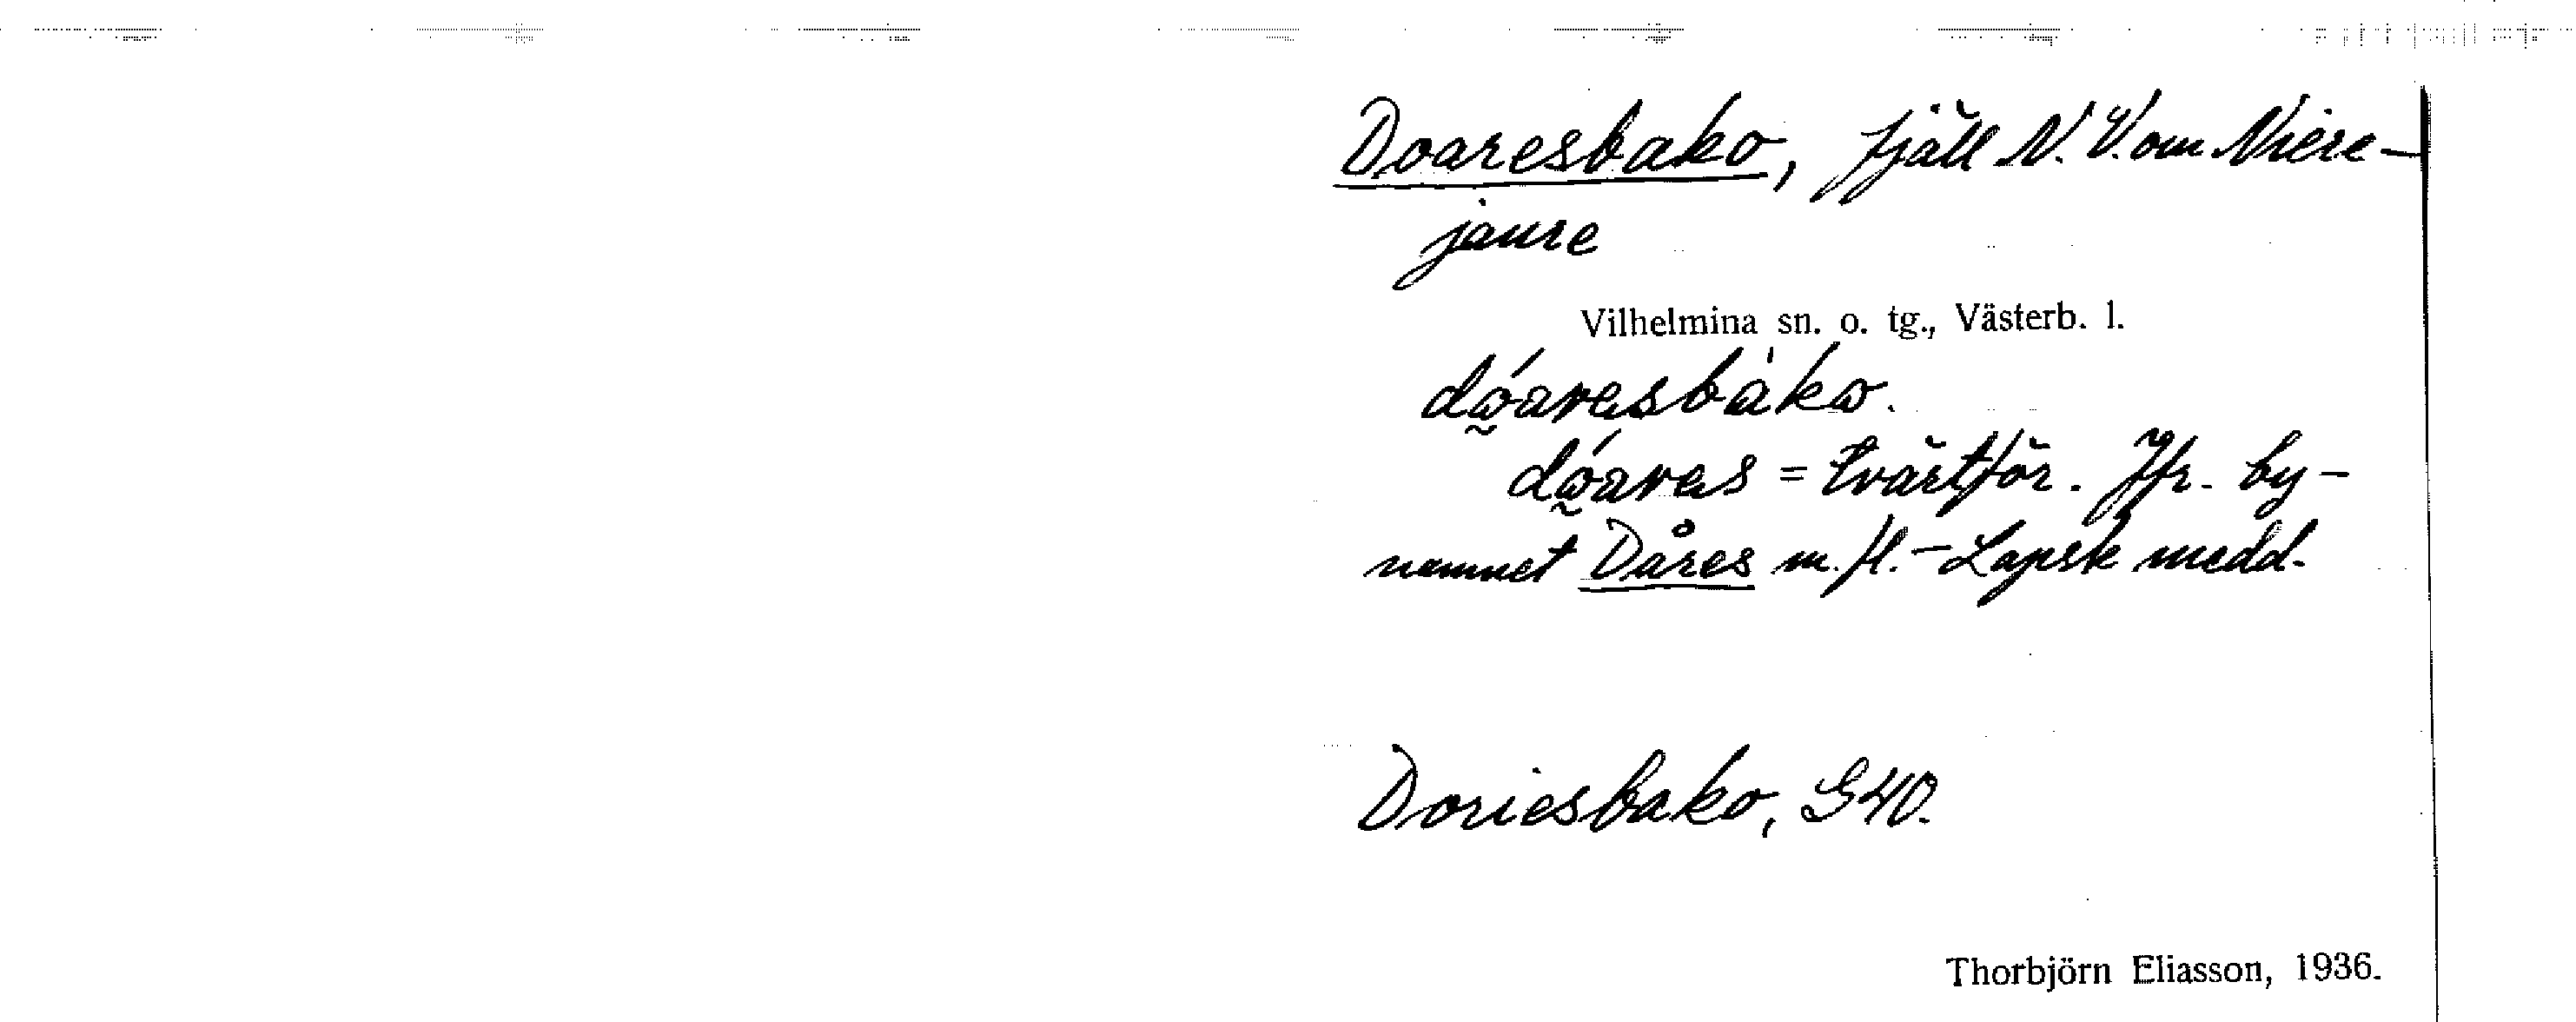 Doaresbako, fjäll N.V. om Niere-
jaure
Vilhelmina sn. o. tg., Västerb. l.
dóaresbàko.
dóares = tvärtför. Jfr. by-
namnet Dåres m.fl. - Lapsk medd.
Doriesbako, G40.
Thorbjörn Eliasson, 1936.